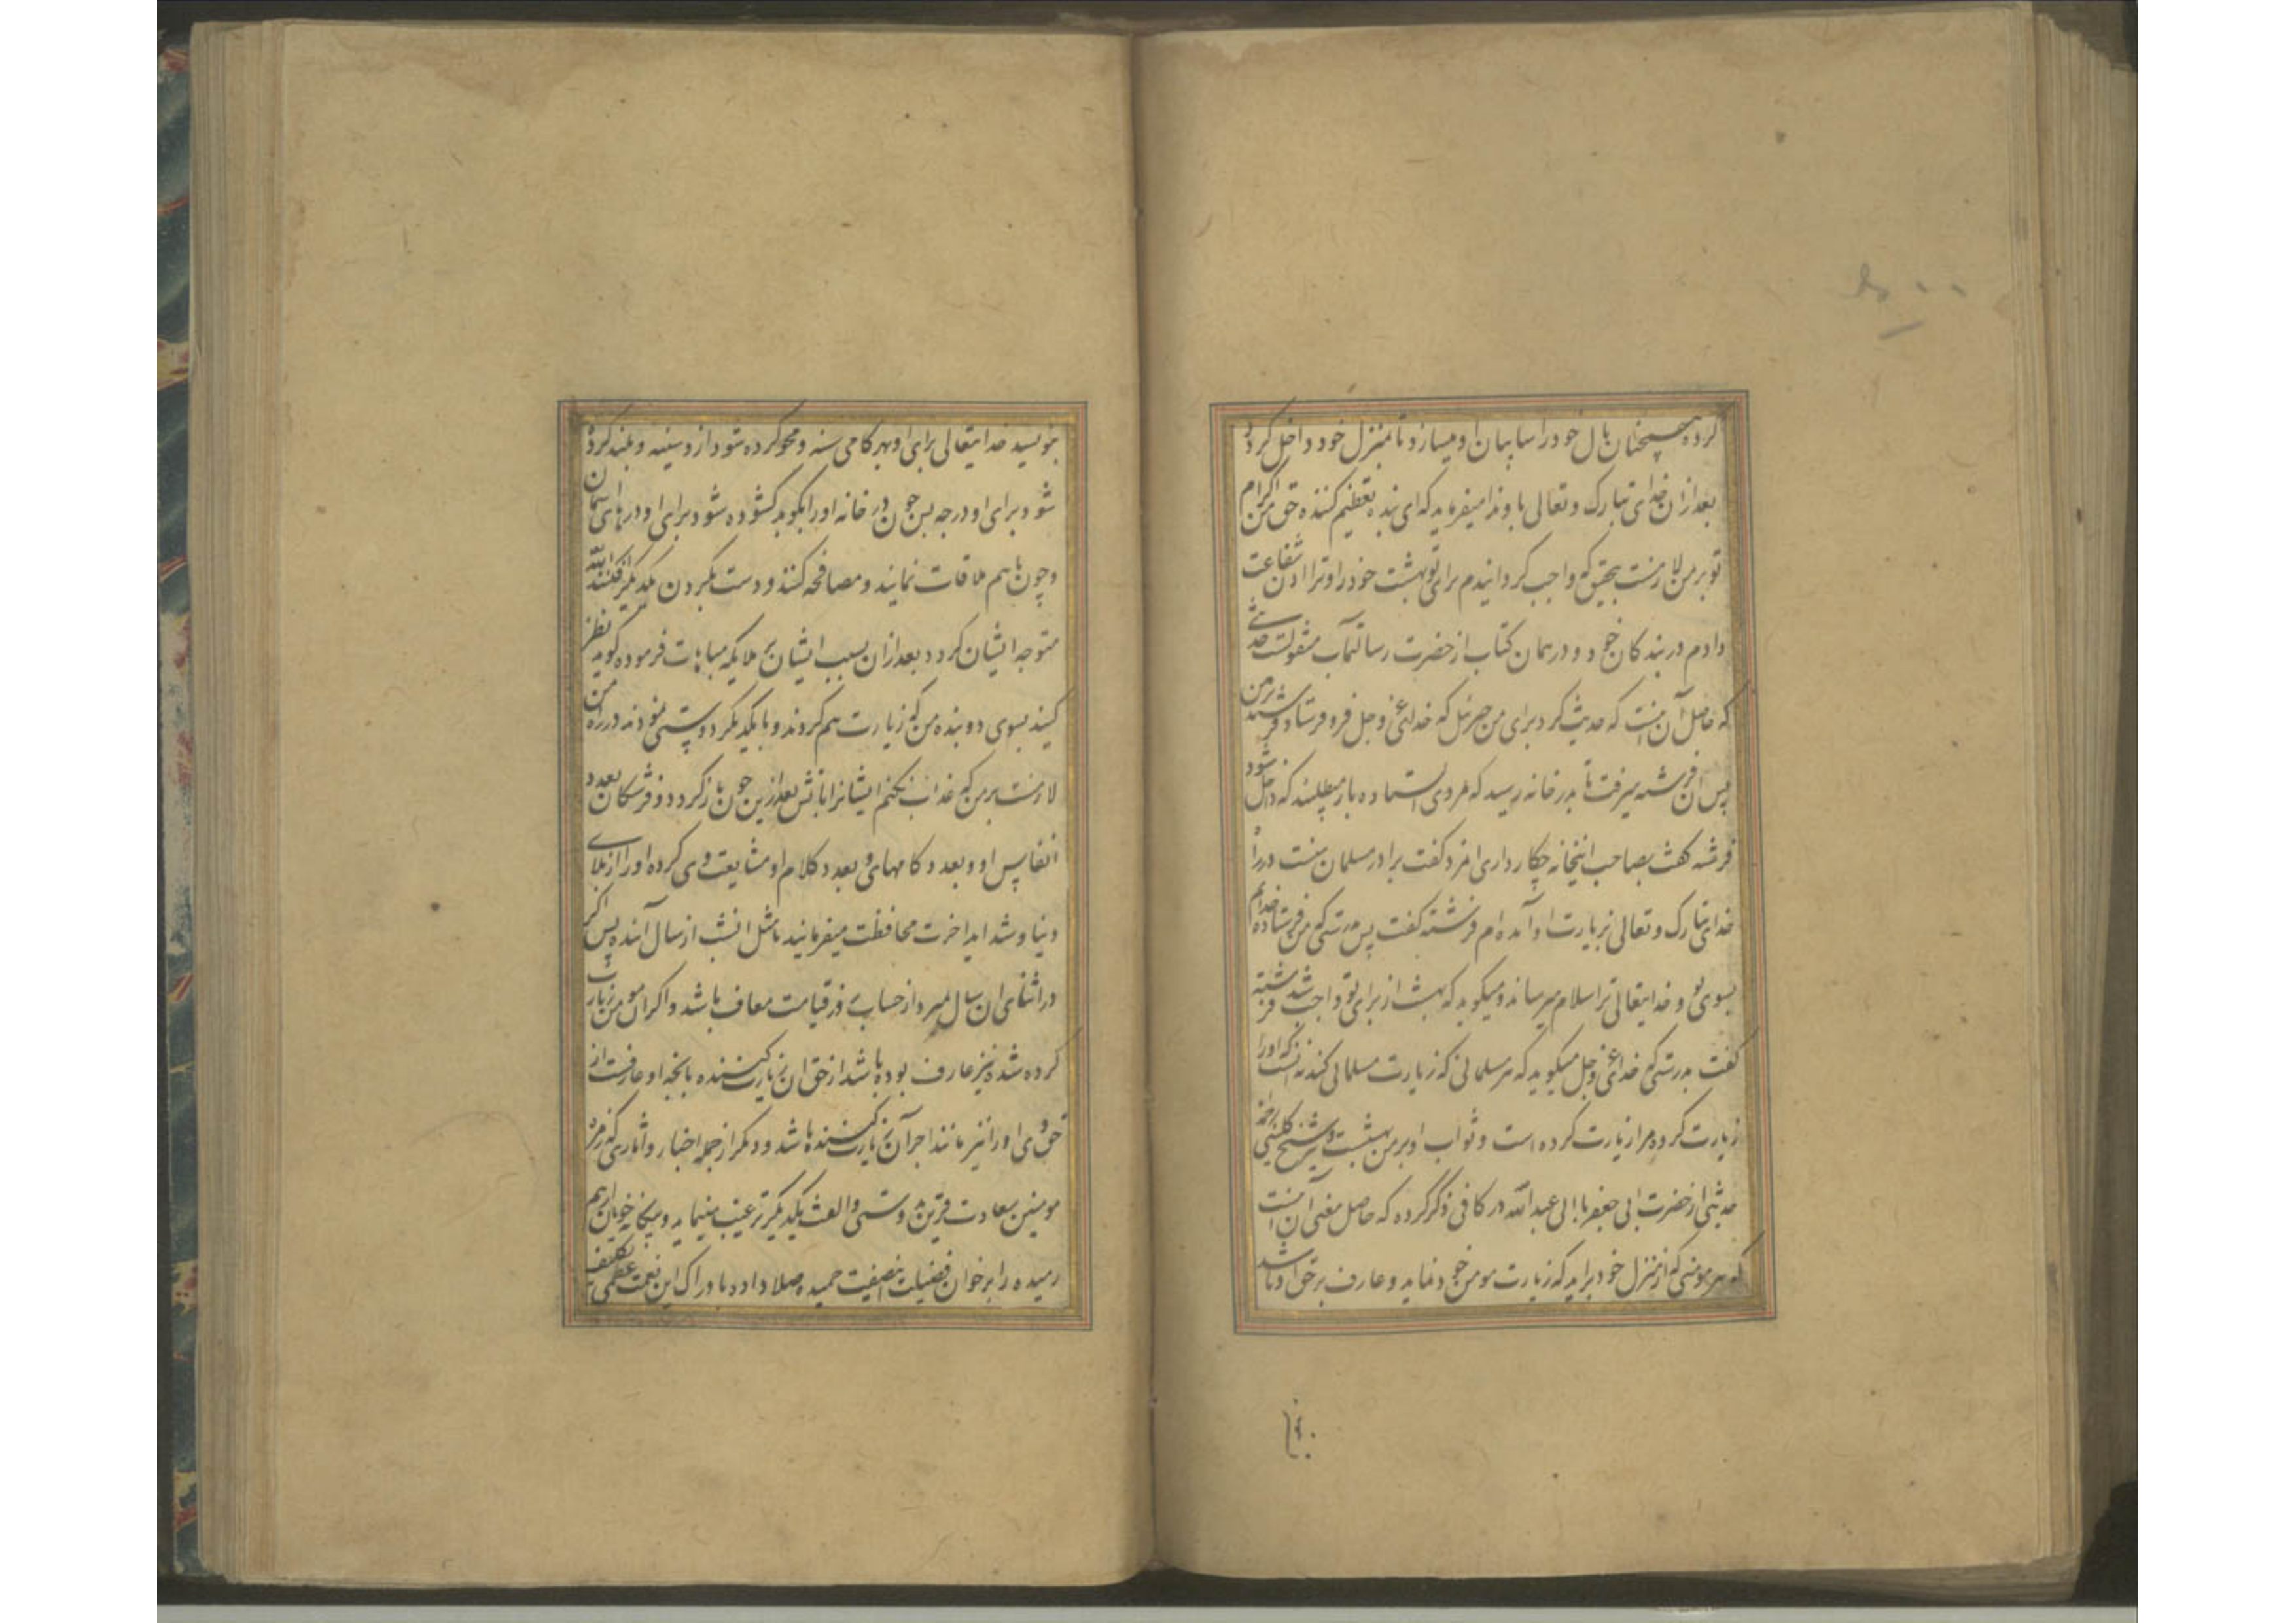 کرده همچنان بال خود را سایبان او میسازد تا بمنزل خود داخل کردد
بعد ازان خدای تبارک و تعالی باو ندا میفرماید که ای بنده تعظیم کننده حق من اکرام
تو بر من لازمست بتحقیق که واجب کردانیدم برای تو بهشت خود را و ترا اذن شفاعت
دادم در بندکان خود و در همان کتاب از حضرت رسالتمآب منقولست حدیثی
که حاصل آن اینست که حدیث کرد برای من جبرئل که خدای عز و جل فرو فرستاد بر زمین فرشته
پس ان فرشته میرفت تا بدر خانه رسید که مردی ایستاده بار میطلبد که داخل شود
فرشته کفت بصاحب اینخانه چکار داری امرد کفت برادر مسلمان منست در راه
خدای تبارک و تعالی بزیارت او آمده ام فرشته کفت پس بدرستی که من فرستاده خدایم
بسوی تو و خدایتعالی ترا سلام میرساند و میکوید که بهشت از برای تو واجب شد فرشته
کفت بدرستی که خدای عز و جل میکوید که هر مسلمانی که زیارت مسلمانی کند نه انست که اورا
زیارت کرده مرا زیارت کرده است و ثواب او بر من بهشتست و شیخ کلینی
حدیثی از حضرت ابی جعفر یا ابی عبد الله در کافی ذکر کرده که حاصل معنی آن اینست
که هر مومنی که از منزل خود براید که زیارت مومن خود نماید و عارف بر حق او باشد
بنویسد خدایتعالی برای او بهر کامی حسنه و محو کرده شود ازو سیئه و بلند کرده
شود برای او درجه پس چون در خانه اورا بکوبد کشوده شود برای او درهای آسمان
و چون باهم ملاقات نمایند و مصافحه کنند و دست بکردن یکدیکر افکنند الله
متوجه ایشان کردد بعد ازان بسبب ایشان بر ملایکه مباهات فرموده کوید نظر
کنید بسوی دو بنده من که زیارت هم کردند و با یکدیکر دوستی نمودند در راه من
لازمست بر من که عذاب نکنم ایشانرا باتش بعد ازین چون باز کردد فرشتکان بعدد
انفاس او و بعدد کامهای و بعدد کلام او مشایعت وی کرده اورا از بلای
دنیا و شداید اخرت محافظت میفرمایند تا مثل انشب از سال آینده پس اکر
در اثنای ان سال میرد از حساب روز قیامت معاف باشد و اکر ان مومن زیارت
کرده شده نیز عارف بوده باشد از حق ان زیارت کننده بانچه او عارفست از
حق وی اورا نیز مانند اجر آن زیارت کننده باشد و دیکر از جمله اخبار و آثاری که زمره
مومنین سعادت قرین را بدوستی و الفت یکدیکر ترغیب مینماید و بیکانه خویان از هم
رمیده را بر خوان فضیلت اینصفت حمیده صلا داده بادراک این نعمت عظمی تکلیف